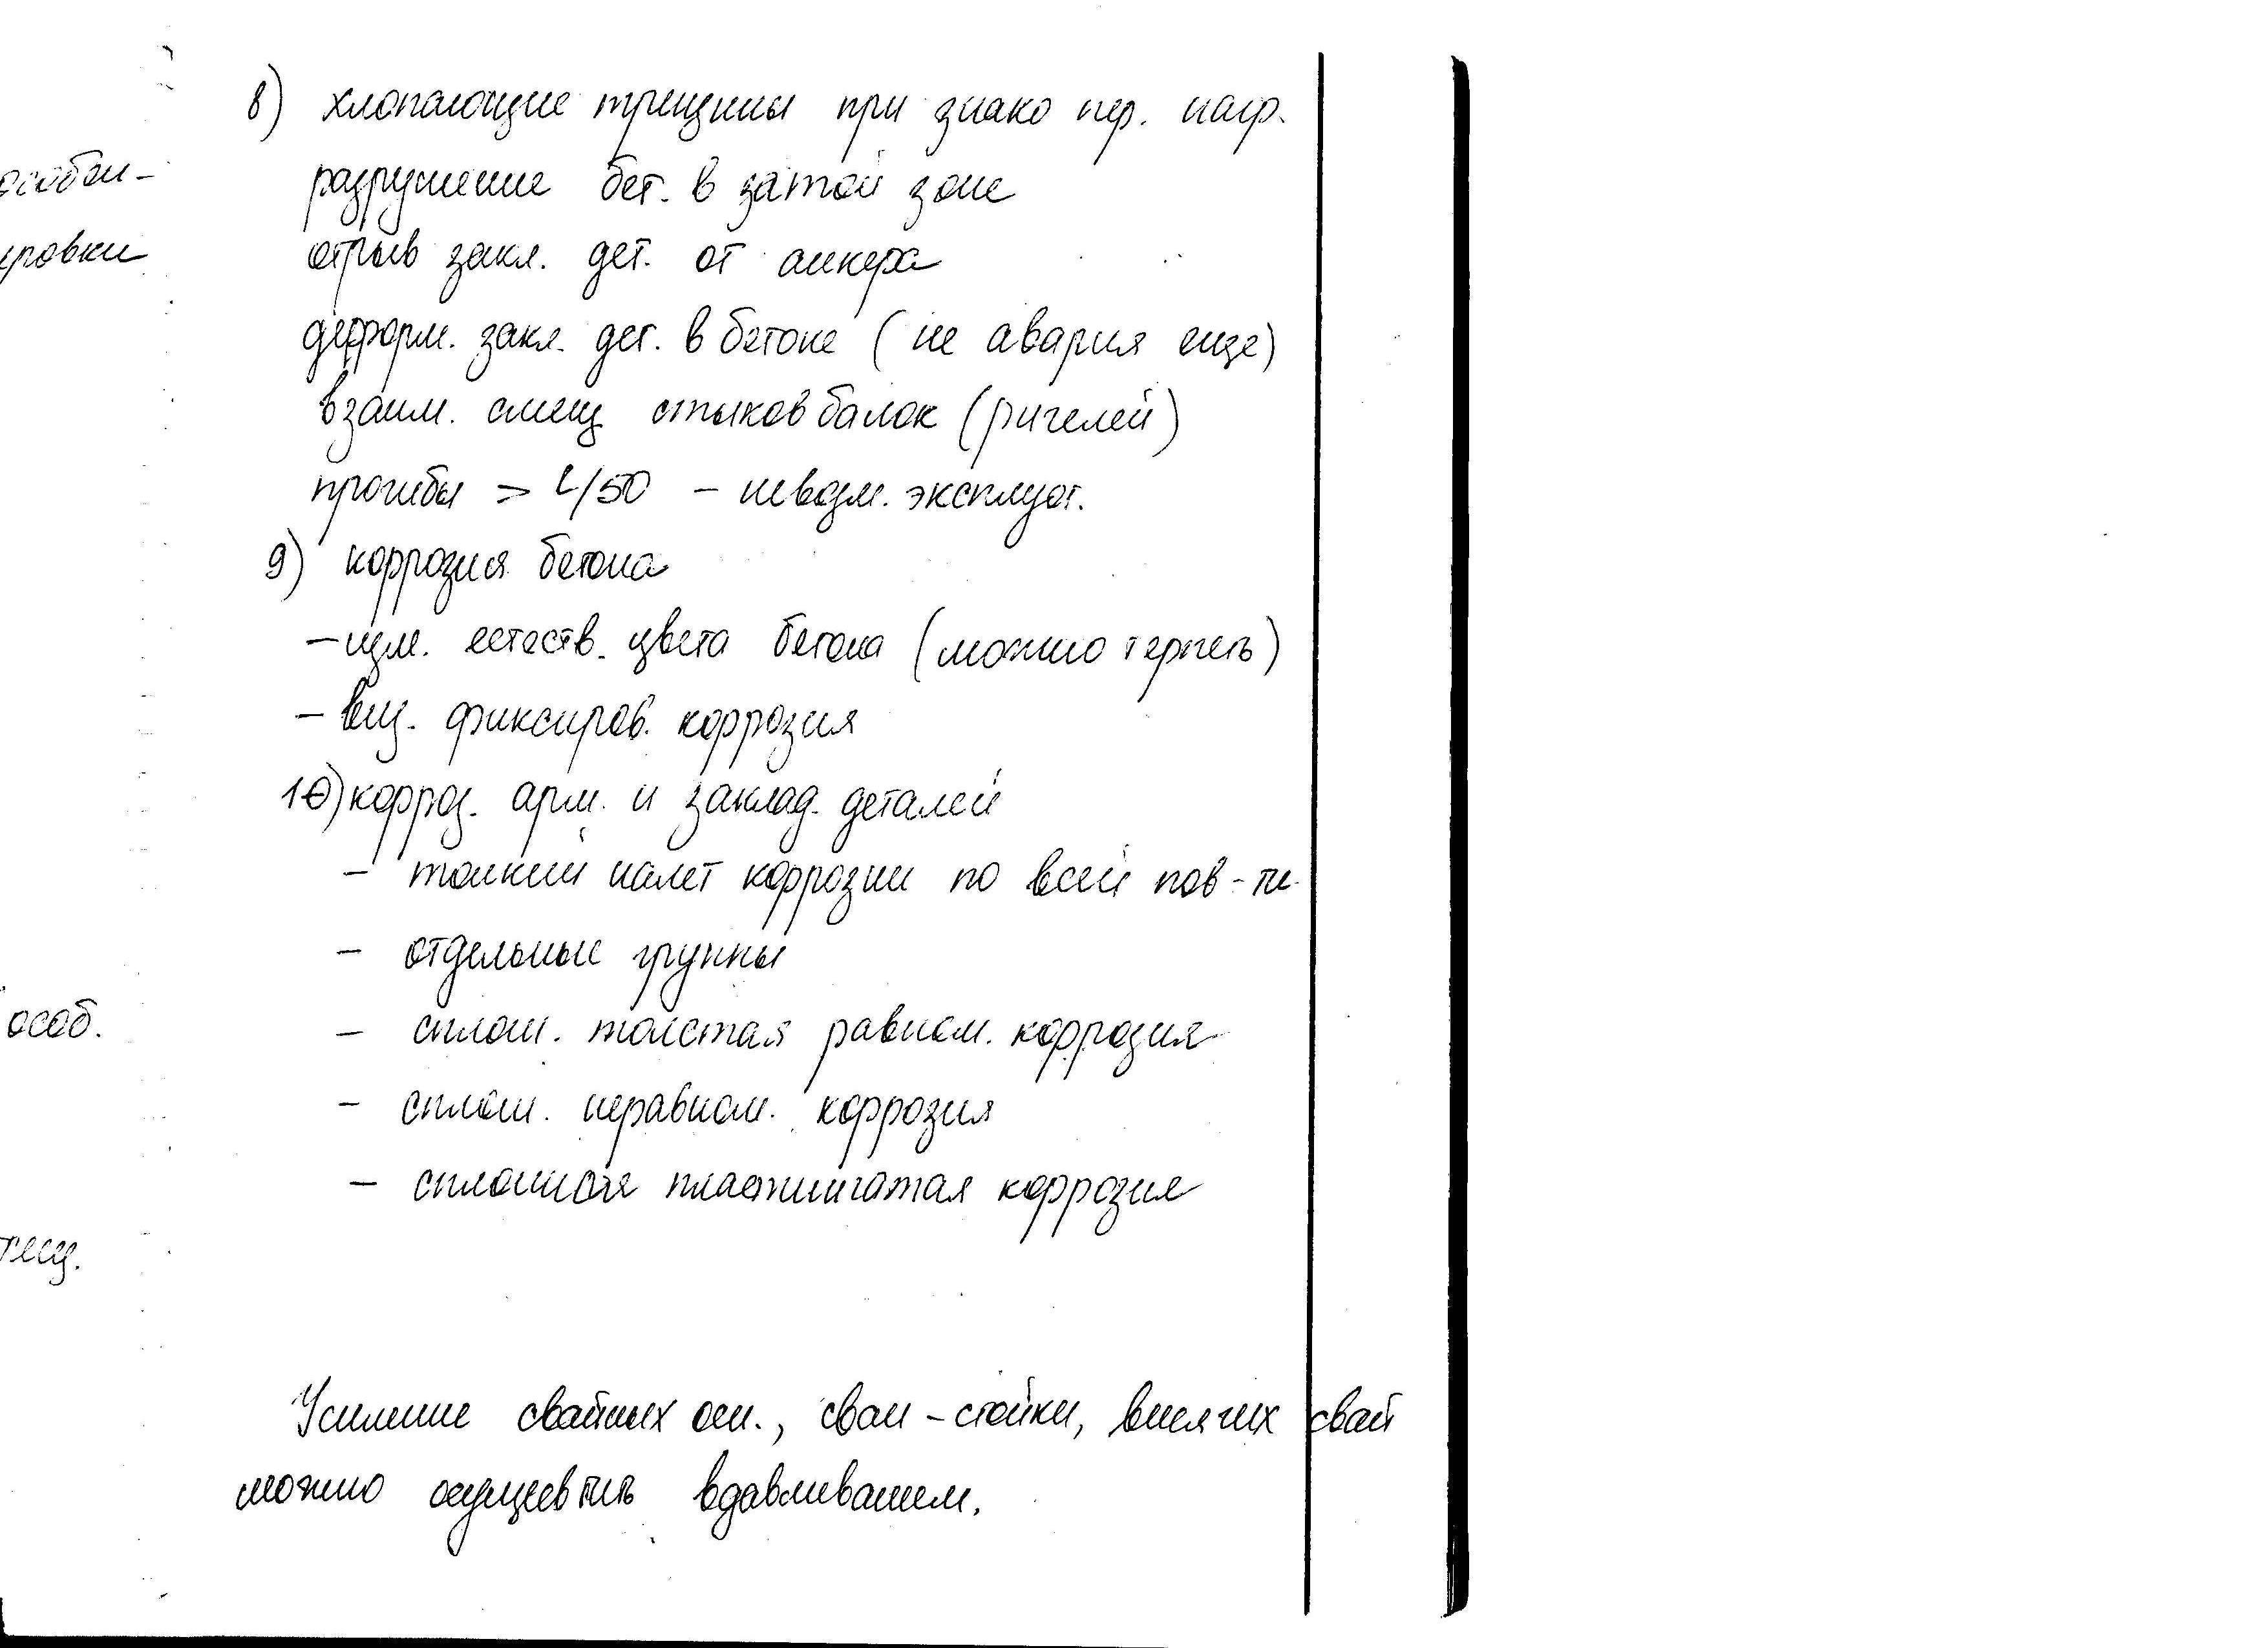 8) хлопающие трещины при знако пер. нагр.
разрушение бет. в затой зоне
отрыв закл. дет. от анкера
деформ. закл. дет. в бетоне (не авария еще)
взаим. смещ стыков балок (ригелей)
прогибы > L/50 – невозм. эксплуат.
9) коррозия бетона
– изм. естеств. цвета бетона (можно терпеть)
– виз. фиксиров. коррозия
10) корроз. арм. и заклад. деталей
– тонкий налет коррозии по всей пов-ти.
– отдельные группы
– сплош. толстая равном. коррозия
– сплош. неравном. коррозия
– сплошная пластинчатая коррозия
Усиление свайных осн., сваи-стойки, висячих свай
можно осущевтить вдавливанием.
особен-
ировки
особ.